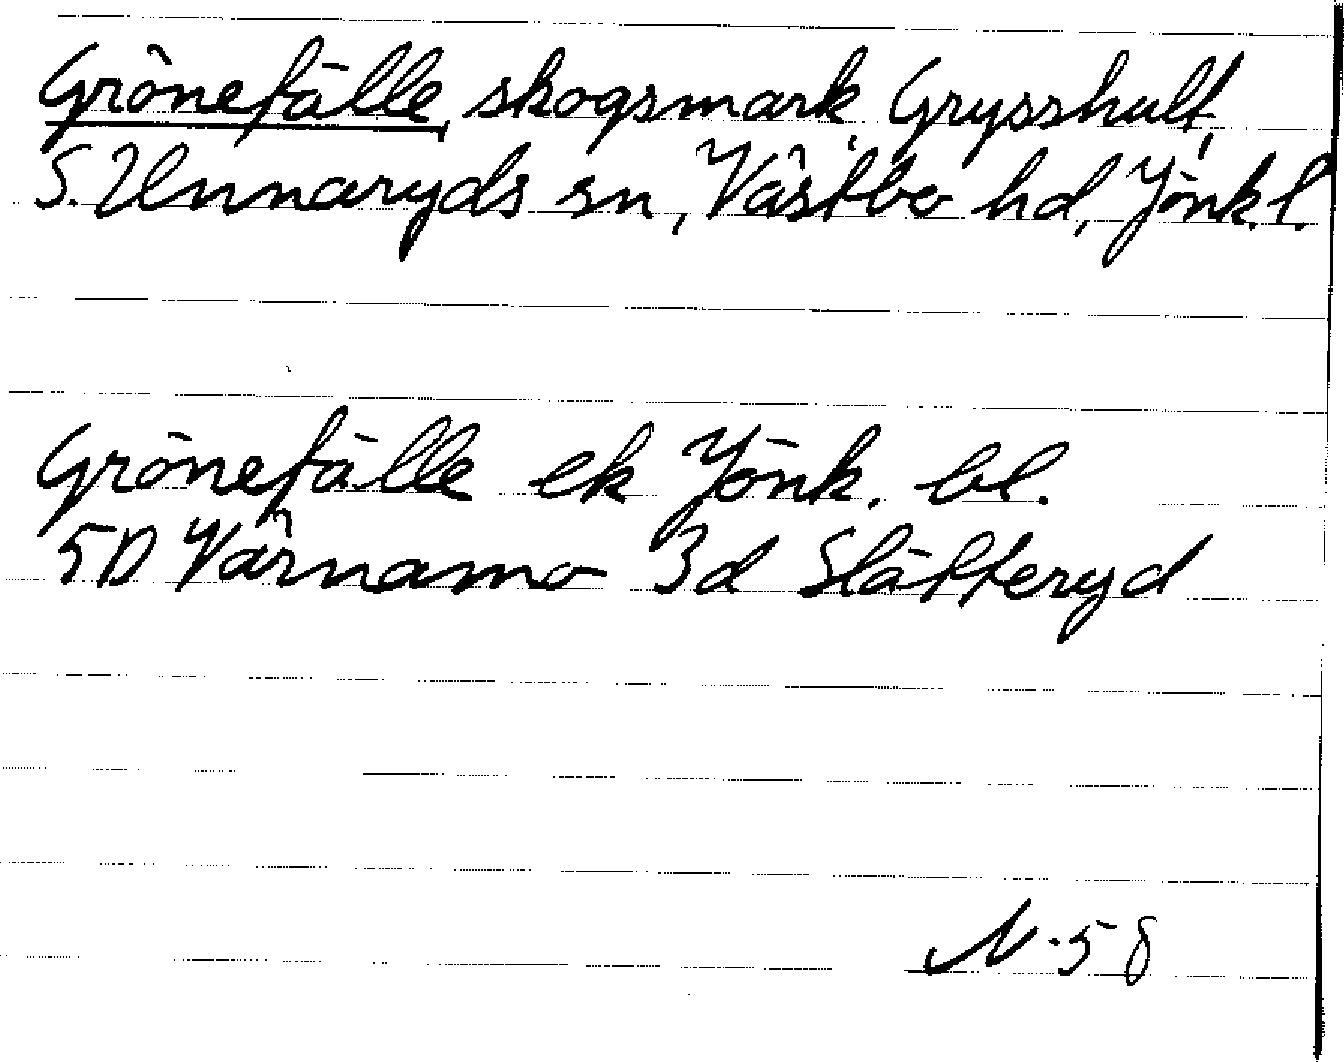 Grönefälle, skogsmark, Grysshult,
S. Unnaryds sn, Västbo hd, Jönk.l.
Grönefälle ek Jönk. bl.
5D Värnamo 3d Slätteryd
N-58